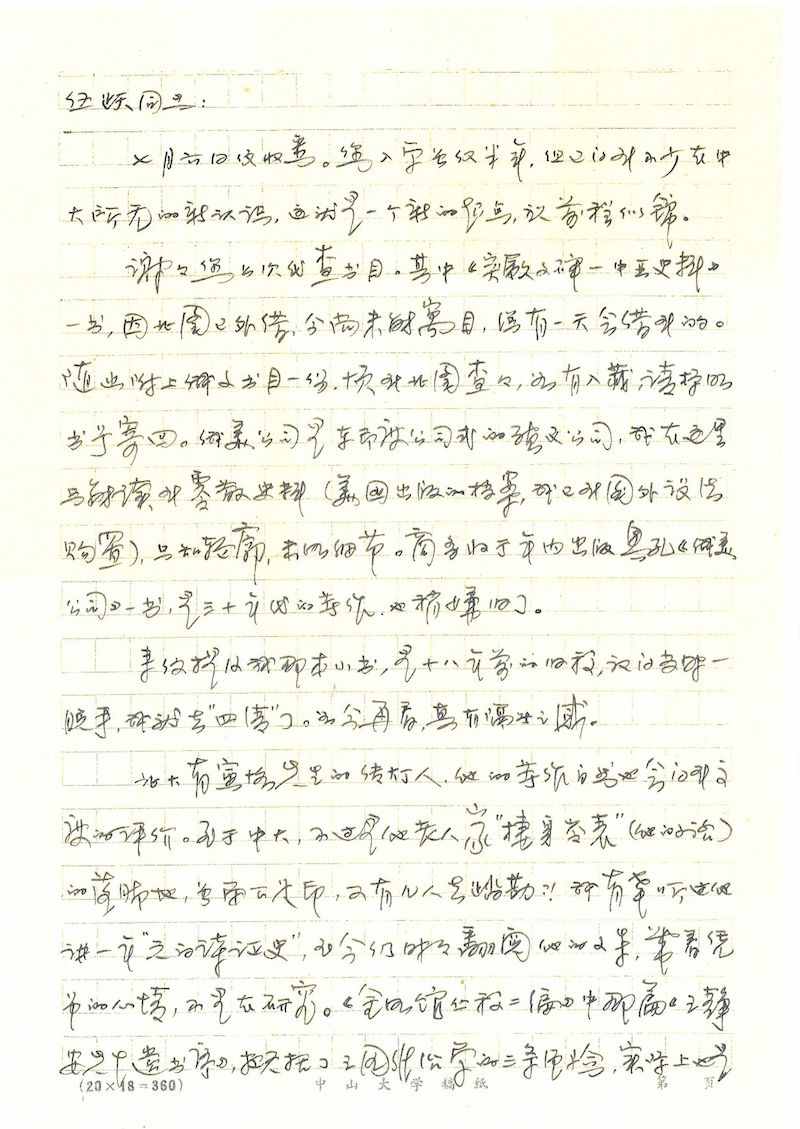 同志：
七月六日信收悉。您入学虽仅半年，但已得到不少在中
大所无的新认识，这就是一个新的起点，祝前程似锦。
谢谢您上次代查书目。其中《突厥文碑一中亚史料》
一书，因北图已外借，今尚未能寓目，总有一天会借到的。
随函附上俄文书目一份，烦到北图查查，如有入藏，请抄明
书号寄回。俄美公司是东印度公司式的殖民公司，我在这里
只能读到零散史料（美国出版的档案，我已到国外设法
购置），只知轮廓，未明细节。商务将于年内出版奥孔《俄美
公司》一书，是三十年代的著作，也稍嫌旧了。
来信提及我那本小书，是十八年前的旧稿，
脱手，我就去“四清”了。如今再看，真有隔世之感。
北大有寅恪先生的传灯人，他的著作自当也会得到应
的评价。至于中大，不过是他老人家“栖身岭表”（他的话）
的落脚地，雪泥鸿爪印，又有几人去踏勘？！我有幸听过他
讲一年“元白诗证史”，至今仍时时翻阅他的文集，带着凭
吊的心情，不是在研究。《金明馆丛稿二编》中那篇《王静
安先生遗书序》，概括了王国维治学的三条，实际上也是
(20×18=360) 中山大学稿纸 第 页